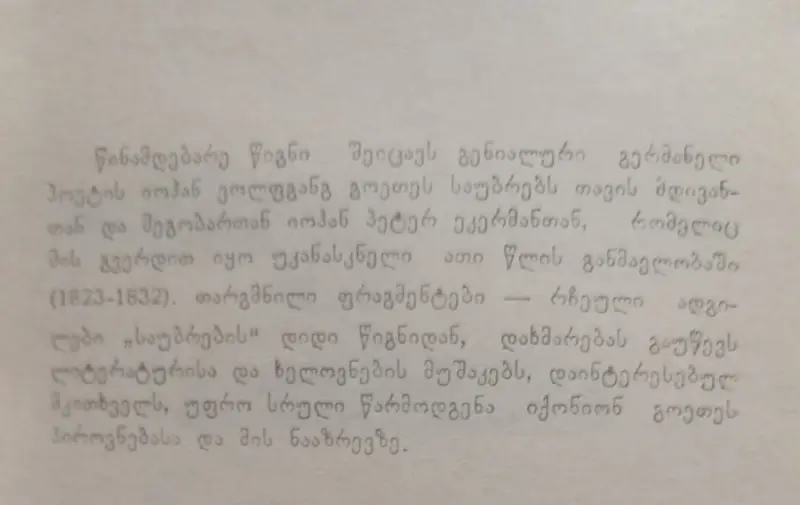 წინამდებარე წიგნი შეიცავს გენიალური გერმანელი
პოეტის იოჰან ვოლფგანგ გოეთეს საუბრებს თავის მდივან-
თან და მეგობართან იოჰან პეტერ ეკერმანთან, რომელიც
მის გვერდით იყო უკანასკნელი ათი წლის განმავლობაში
(1823-1832). თარგმნილი ფრაგმენტები — რჩეული ადგი-
ლები „საუბრების“ დიდი წიგნიდან, დახმარებას გაუწევს
ლიტერატურისა და ხელოვნების მუშაკებს, დაინტერესებულ
მკითხველს, უფრო სრული წარმოდგენა იქონიონ გოეთეს
პიროვნებასა და მის ნააზრევზე.